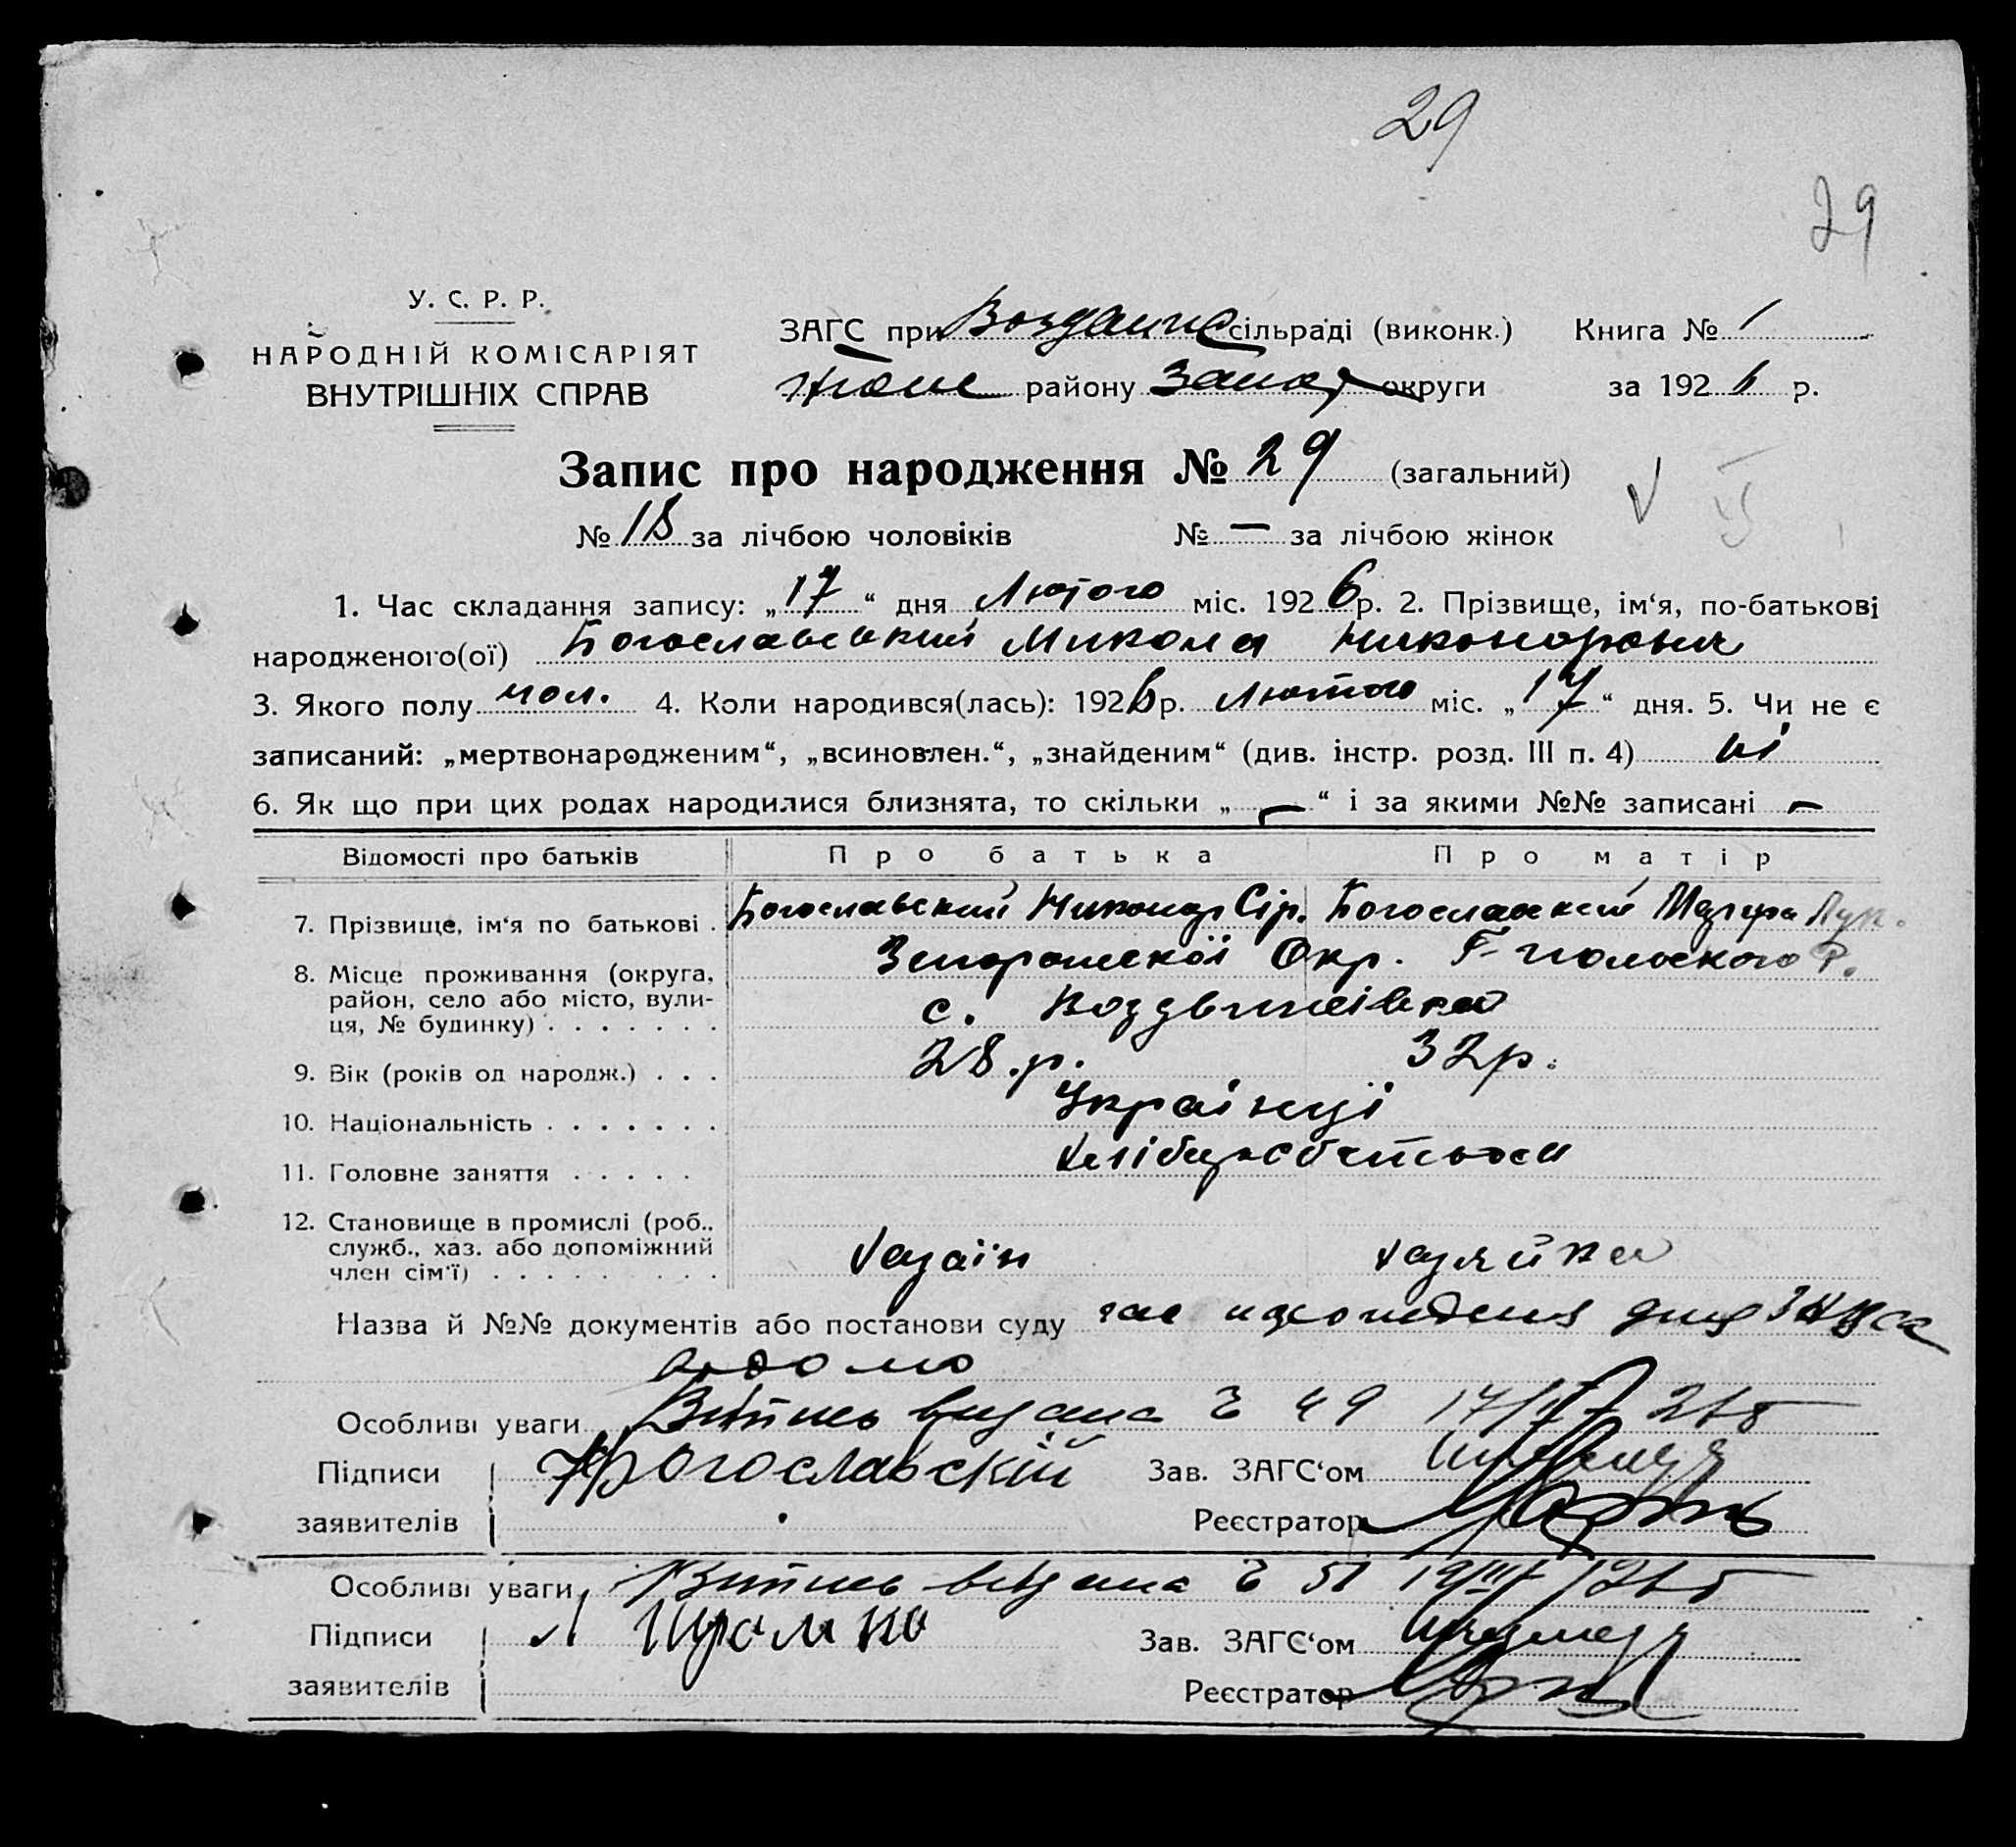 29
29
У. С. Р. Р.
НАРОДНІЙ КОМІСАРІЯТ
ВНУТРІШНІХ СПРАВ
ЗАГС при сільраді (виконк.) Книга № 1
району Запор округи за 1926 р.
Запис про народження № 29 (загальний)
№ 18 за лічбою чоловіків № — за лічбою жінок
1. Час складання запису: „17“ дня Лютого міс. 1926 р. 2. Прізвище, ім‘я, по-батькові
народженого(ої) Богославський Микола Никонорович
3. Якого полу чол. 4. Коли народився(лась): 1926 р. Лютого міс. „17“ дня. 5. Чи не є
записаний: „мертвонародженим“, „всиновлен.“, „знайденим“ (див. інстр. розд. III п. 4) ні
6. Як що при цих родах народилися близнята, то скільки „—“ і за якими №№ записані —
Відомості про батьків Про батька Про матір
7. Прізвище, ім‘я по батькові . Богославский Никонор Сір. Богославский Марфа
8. Місце проживання (округа, Запорожской Окр. Г-Польского Р.
район, село або місто, вули-
ця, № будинку) . . . . . . . с. Воздвижівка
9. Вік (років од народж.) . . . 28.р. 32р.
10. Національність . . . . . . . Українці
11. Головне заняття . . . . . Хлібороботвом
12. Становище в промислі (роб..
служб., хаз. або допоміжний
член сім‘ї) . . . . . . . . . Хазаїн Хазяйка
Назва й №№ документів або постанови суду
відомо
Особливі уваги Витпись видана 49
Підписи Богославскій Зав. ЗАГС‘ом
заявителів Реєстратор
Особливі уваги Витпись видана 51
Підписи Зав. ЗАГС‘ом
заявителів Реєстратор